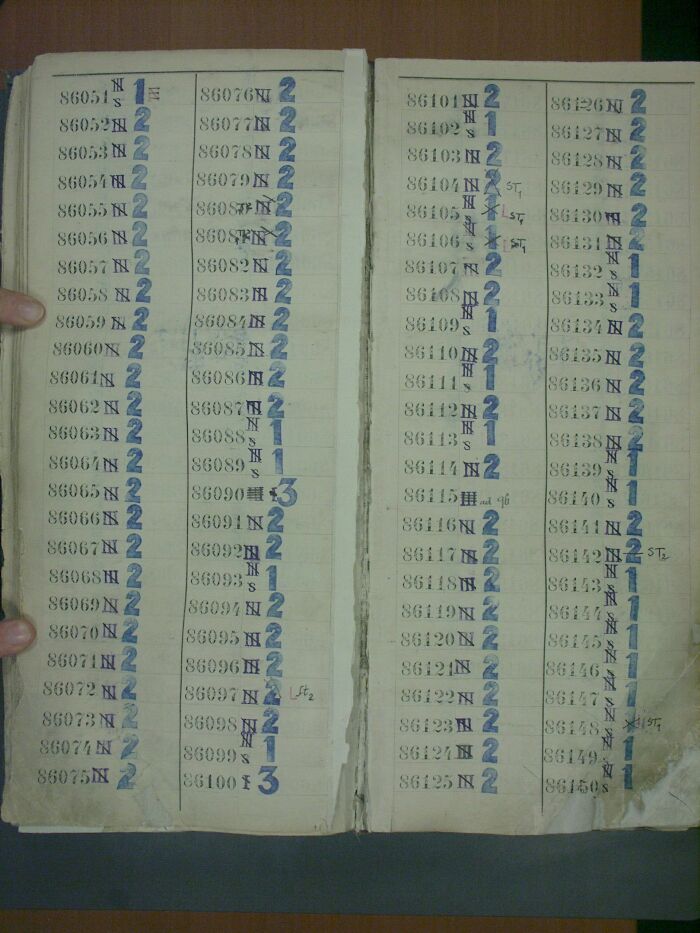 86051 N S 1
86052 N 2
86053 N 2
86054 N 2
86055 N 2
86056 N 2
86057 N 2
86058 N 2
86059 N 2
86060 N 2
86061 N 2
86062 N 2
86063 N 2
86064 N 2
86065 N 2
86066 N 2
86067 N 2
86068 N 2
86069 N 2
86070 N 2
86071 N 2
86072 N 2
86073 N 2
86074 N 2
86075 N 2
86076 N 2
86077 N 2
86078 N 2
86079 N 2
8608 N 2
8608 N 2
86082 N 2
86083 2
86084 N 2
86085 N 2
86086 N 2
86087 N 2
86088 N S 1
86089 N S 1
86090 3
86091 N 2
86092 N 2
86093 N S 1
86094 N 2
86095 N 2
86096 N 2
86097 N 2 St2
86098 N 2
86099 N S 1
86100 I 3
86101 N 2
86102 N S 1
86103 N 2
86104 N 2 ST1
86105 N S 1 L ST1
86106 N S 1 L ST1
86107 N 2
86108 N 2
86109 N S 1
86110 N 2
86111 N S 1
86112 N 2
86113 N S 1
86114 N 2
86115 ad 96
86116 N 2
86117 N 2
86118 N 2
86119 N 2
86120 N 2
86121 N 2
86122 N 2
86123 N 2
86124 N 2
86125 N 2
86126 N 2
86127 N 2
86128 N 2
86129 N 2
86130 N 2
86131 N 2
86132 N S 1
86133 N S 1
86134 N 2
86135 N 2
86136 N 2
86137 N 2
86138 N 2
86139 N S 1
86140 N S 1
86141 N 2
86142 N 2 ST2
86143 N S 1
86144 N S 1
86145 N S 1
86146 N S 1
86147 N S 1
86148 N S 1 ST1
86149 N S 1
86150 N S 1